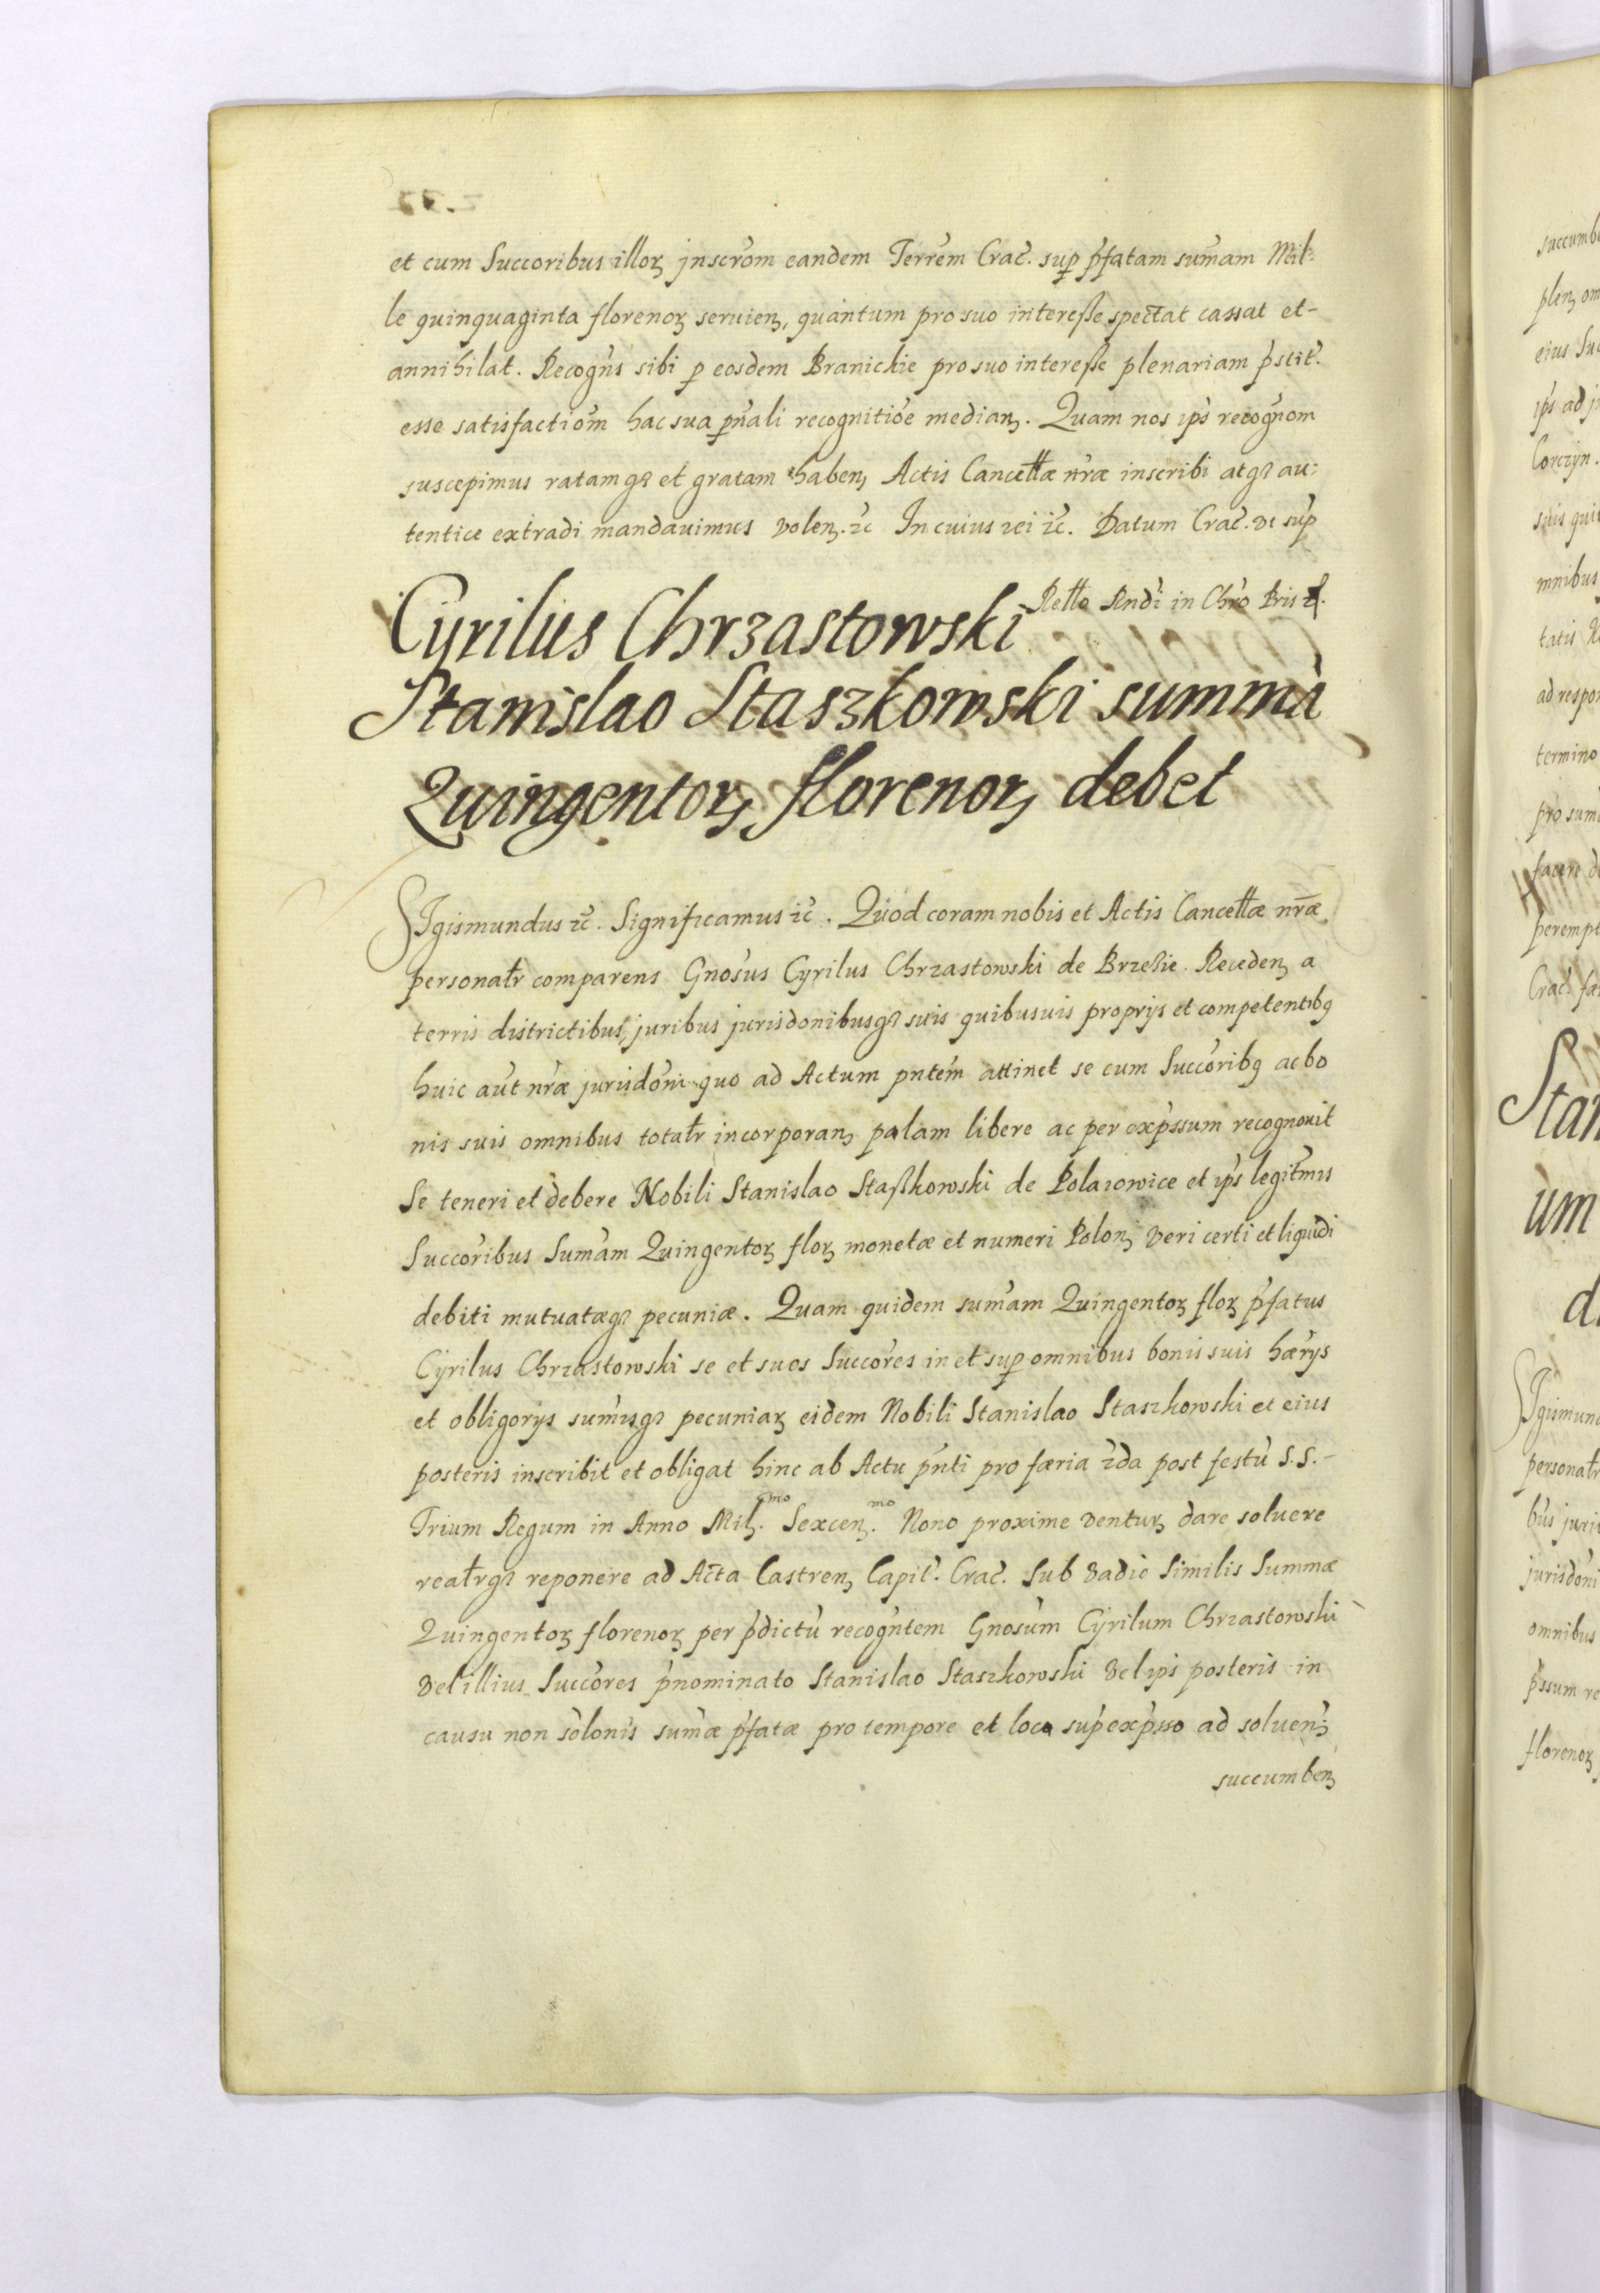 et cum Succoribus illoꝝ jnscrōm eandem Terrēm Crac̄. suꝑ p̄fatam sum̄am Mil:
le quinquaginta florenoꝝ servienꝫ, quantum pro suo interesse spec̄tat cassat et-
annihilat. Recogn̄s sibi ꝑ eosdem Branickie pro suo interesse plenariam p̄stit̄.
esse satisfactiōm hac sua p̄n̄ali recognitiōe medianꝫ. Quam nos ip̄s recogn̄om
suscepimus ratamqꝫ et gratam habenꝫ Actis Cancellæ nr̄æ inscribi atqꝫ au:
tentice extradi mandavimus volenꝫ. ꝛc̄ In cuius rei ꝛc̄. Datum Crac̄. vt sup̄
Rell̄o Rndi in Chr̄o Pris ꝛ.
Cyrilus Chrzastowski
Stanislao Staszkowski summā
Quingentoꝝ florenoꝝ debet
SIgismundus ꝛc̄. Significamus ꝛc̄. Quod coram nobis et Actis Cancellæ nr̄æ
personalr̄ comparens Gnos̄us Cyrilus Chrzastowski de Brzezie. Recedenꝫ a
terris districtibus, juribus jurisdonibusqꝫ suis quibusvis proprijs et competentibꝫ
huic aut̄ nr̄æ jurisdōni quo ad Actum pn̄tem attinet se cum Succōribꝫ ac bo
nis suis omnibus totalr̄ incorporanꝫ palam libere ac per exp̄ssum recognovit
Se teneri et debere Nobili Stanislao Staszkowski de Polarowice et ip̄s legit̄mis
Succōribus Sum̄am Quingentoꝝ floꝝ monetæ et numeri Polonꝫ veri certi et liquidi
debiti mutuatæqꝫ pecuniæ. Quam quidem sum̄am Quingentoꝝ floꝝ p̄fatus
Cyrilus Chrzastowski se et suos Succōres in et suꝑ omnibus bonis suis hærijs
et obligorijs sum̄isqꝫ pecuniaꝝ eidem Nobili Stanislao Staszkowski et eius
posteris inscribit et obligat hinc ab Actu pn̄ti pro færia 2da post festū S.S.-
Trium Regum in Anno Milꝫ.mo Sexcenꝫ.mo Nono proxime venturꝫ dare solvere
realr̄qꝫ reponere ad Ac̄ta Castrenꝫ Capit̄. Crac̄. Sub vadio Similis Summæ
Quingentoꝝ florenoꝝ per p̄dictū recogn̄tem Gnosūm Cyrilum Chrzastowski
vel illius Succōres p̄nominato Stanislao Staszkowski vel ip̄s posteris in
causu non sōlonis sum̄æ p̄fatæ pro tempore et loco sup̄exp̄sso ad solvenꝫ
succumbenꝫ